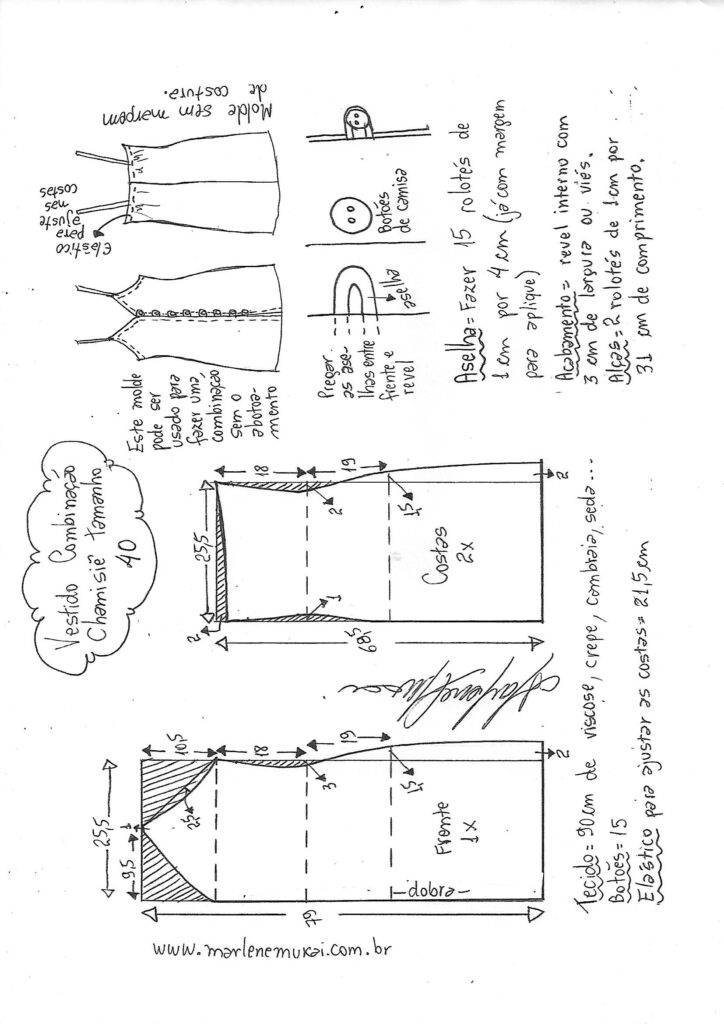 Vestido Combinação
Chamisiê tamanho
40
Este molde
pode ser
usado para
fazer uma
combinação
sem o
abotoa-
mento
Elástico
para
ajuste
nas
costas
Molde sem margem
de costura.
Pregar
as ase-
lhas entre
frente e
revel
aselha
Botões
de camisa
Aselha = Fazer 15 rolotés de
1 cm por 4 cm (já com margem
para aplique)
Acabamento = revel interno com
3 cm de largura ou viés.
Alças = 2 rolotés de 1 cm por
31 cm de comprimento.
www.marlenemukai.com.br
25,5
9,5
1
2,5
10,5
18
19
3
1,5
2
79
Frente
1x
dobra
25,5
2
18
19
2
1,5
1
2
68,5
Costas
2x
Tecido = 90 cm de viscose, crepe, cambraia, seda...
Botões = 15
Elástico para ajustar as costas = 21,5 cm